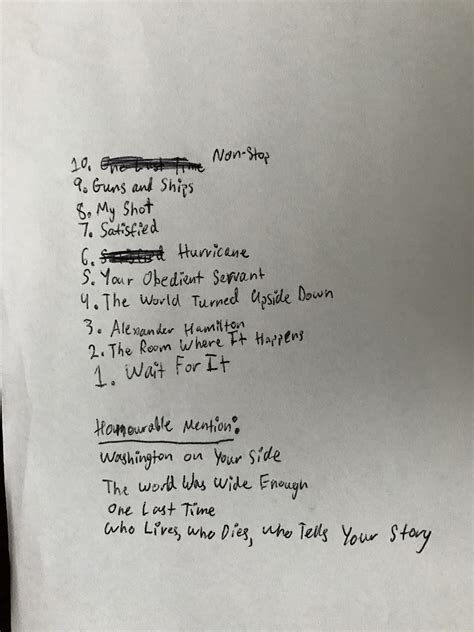 10. One Last Time Non-Stop
9. Guns and Ships
8. My Shot
7. Satisfied
6. Satisfied Hurricane
5. Your Obedient Servant
4. The World Turned Upside Down
3. Alexander Hamilton
2. The Room Where It Happens
1. Wait For It
Honourable Mention:
Washington on Your Side
The World Was Wide Enough
One Last Time
Who Lives, Who Dies, Who Tells Your Story